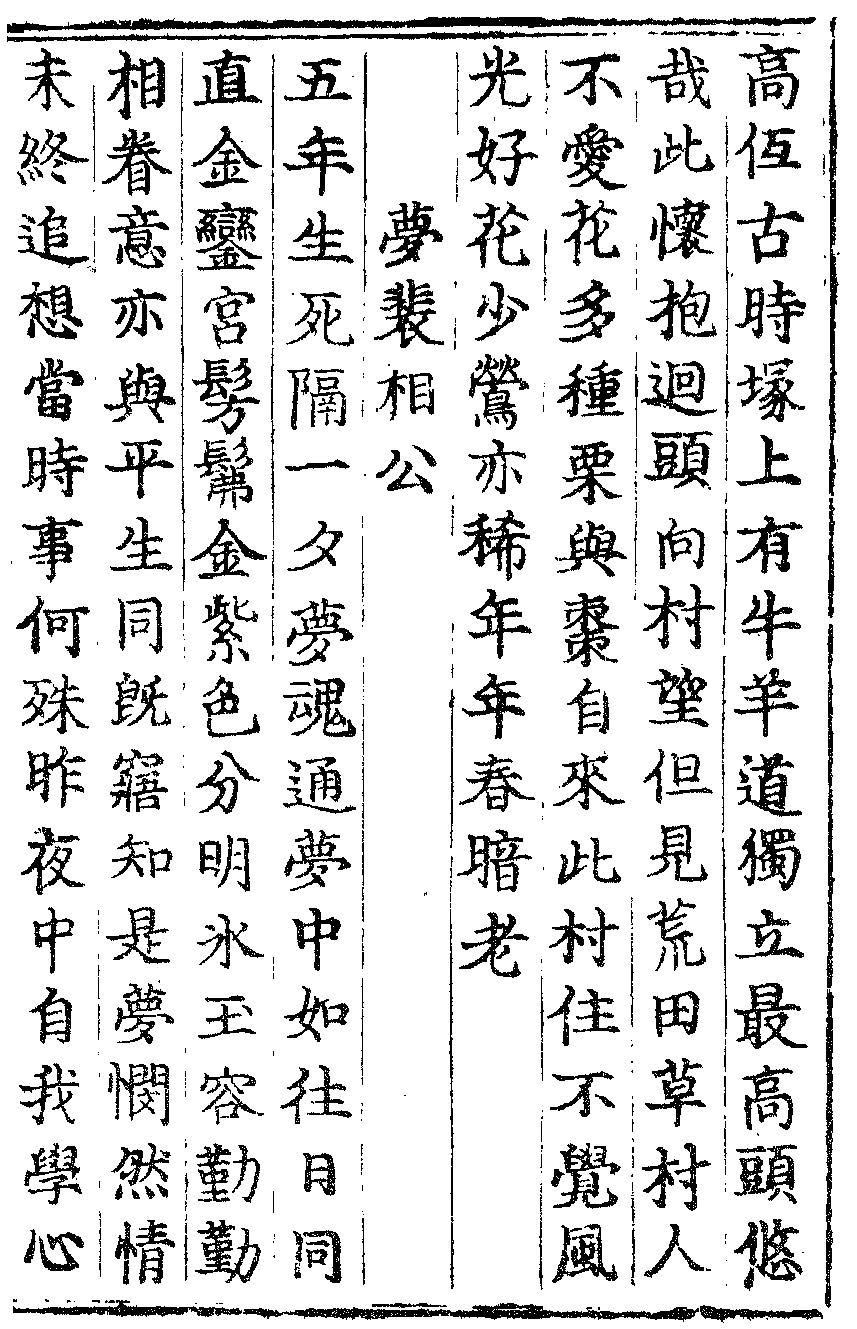 高低古時塚上有牛羊道獨立最高頭悠
哉此懷抱迴頭向村望但見荒田草村人
不愛花多種栗與棗自來此村住不覺風
光好花少鶯亦稀年年春暗老
夢裴相公
五年生死隔一夕夢魂通夢中如往日同
直金鑾宮髣髴金紫色分明氷玉容勤勤
相眷意亦與平生同旣寤知是夢憫然情
未終追想當時事何殊昨夜中自我學心